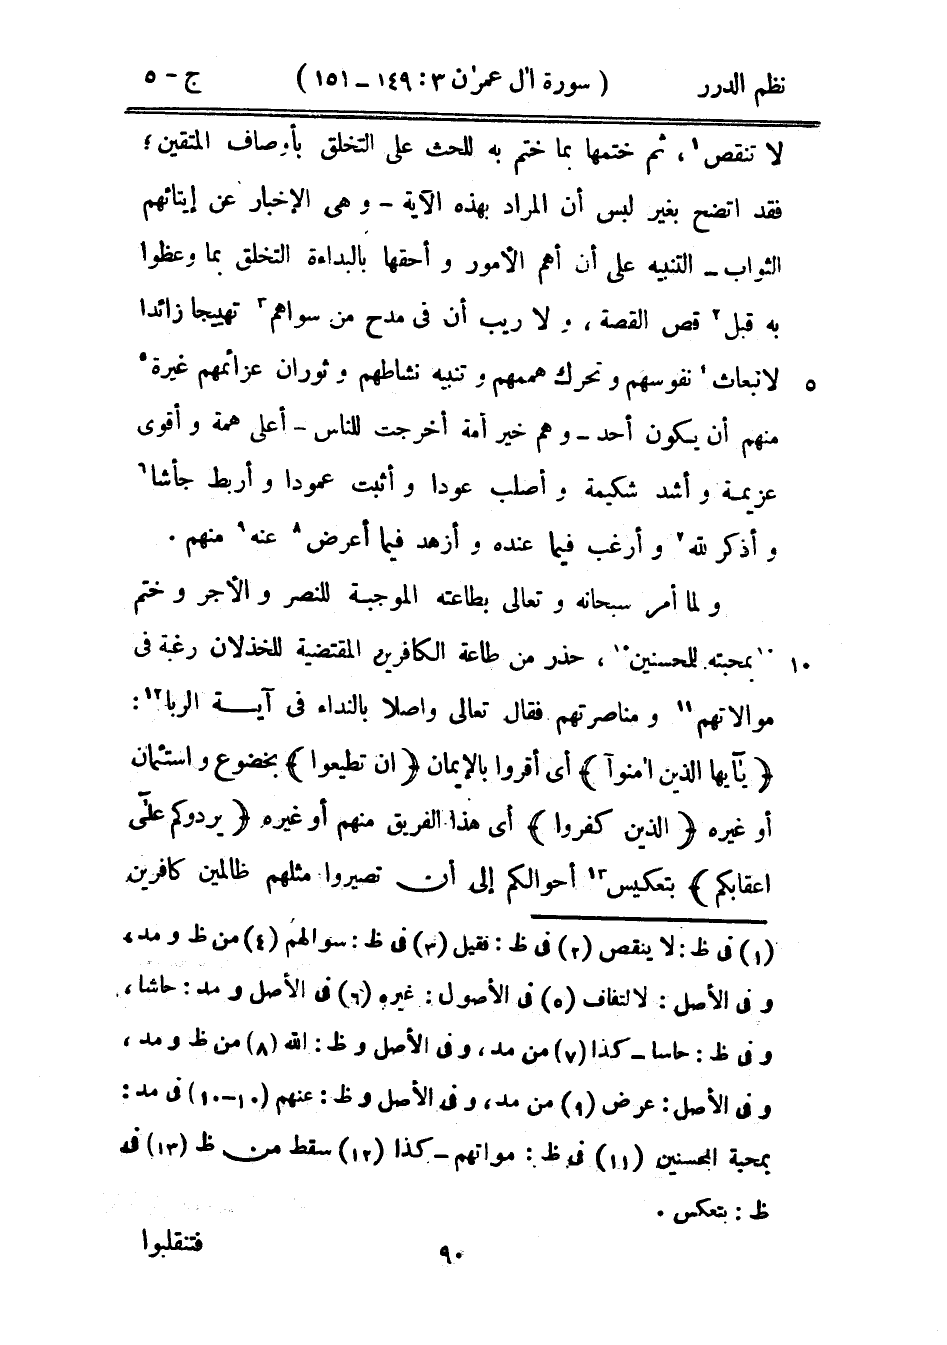 نظم الدرر ( سورة اٰل عمرٰن ٣ : ١٤٩ ـ ١٥١ ) ج - ٥
لا تنقص١ ، ثم ختمها بما ختم به للحث على التخلق بأوصاف المتقين ؛
فقد اتضح بغير لبس أن المراد بهذه الآية ـ و هى الإخبار عن إيتائهم
الثواب ـ التنبيه على أن أهم الأمور و أحقها بالبداءة التخلق بما وعظوا
به قبل٢ قص القصة ، و لا ريب أن فى مدح من سواهم٣ تهييجا زائدا
٥ لانبعاث٤ نفوسهم و تحرك هممهم و تنبيه نشاطهم و ثوران عزائمهم غيرة٥
منهم أن يكون أحد ـ و هم خير أمة أخرجت للناس ـ أعلى همة و أقوى
عزيمة و أشد شكيمة و أصلب عودا و أثبت عمودا و أربط جأشا٦
و أذكر لله٧ و أرغب فيما عنده و أزهد فيما أعرض٨ عنه٩ منهم .
و لما أمر سبحانه و تعالى بطاعته الموجبة للنصر و الأجر و ختم
١٠ ١٠بمحبته للمحسنين١٠ ، حذر من طاعة الكافرين المقتضية للخذلان رغبة فى
موالاتهم١١ و مناصرتهم فقال تعالى واصلا بالنداء فى آيـة الربا١٢ :
﴿ يٰٓايها الذين اٰمنوآ ﴾ أى أقروا بالإيمان ﴿ ان تطيعوا ﴾ بخضوع و استئمان
أو غيره ﴿ الذين كفروا ﴾ أى هذا الفريق منهم أو غيره ﴿ يردوكم علىٰٓ
اعقابكم ﴾ بتعكيس١٣ أحوالكم إلى أن تصيروا مثلهم ظالمين كافرين
(١) فى ظ : لا ينقص (٢) فى ظ : فقيل (٣) فى ظ : سوالهم (٤) من ظ و مد ،
و فى الأصل : لالتفاف (٥) فى الأصول : غيره (٦) فى الأصل و مد : حاشا ،
و فى ظ : حاسا ـ كذا (٧) من مد ، و فى الأصل و ظ : الله (٨) من ظ و مد ،
و فى الأصل : عرض (٩) من مد ، و فى الأصل و ظ : عنهم (١٠-١٠) فى مد :
بمحبة المحسنين (١١) فى ظ : مواتهم ـ كذا (١٢) سقط من ظ (١٣) فى
ظ : بتعكس .
٩٠ فتنقلبوا